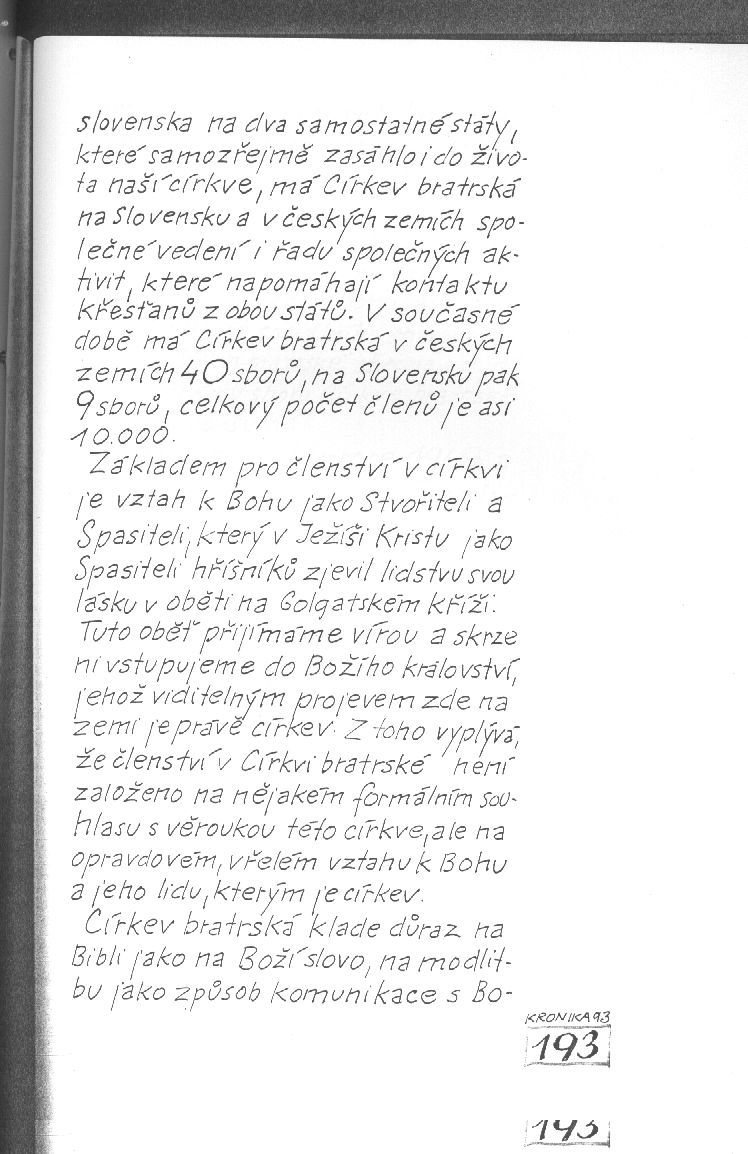 slovenska na dva samostatné státy,
které samozřejmě zasáhlo i do živo-
ta naší církve, má Církev bratrská
na Slovensku a v českých zemích spo-
lečné vedení i řadu společných ak-
tivit, které napomáhají kontaktu
křesťanů z obou států. V současné
době má Církev bratrská v českých
zemích 40 sborů, na Slovensku pak
9 sborů, celkový počet členů je asi
10.000.
Základem pro členství v církvi
je vztah k Bohu jako Stvořiteli a
Spasiteli, který v Ježíši Kristu jako
Spasiteli hříšníků zjevil lidstvu svou
lásku v oběti na Golgatském kříži.
Tuto oběť přijímáme vírou a skrze
ni vstupujeme do Božího království,
jehož viditelným projevem zde na
zemi je právě církev. Z toho vyplývá,
že členství v Církvi bratrské není
založeno na nějakém formálním sou-
hlasu s věroukou této církve, ale na
opravdovém, vřelém vztahu k Bohu
a jeho lidu, kterým je církev.
Církev bratrská klade důraz na
Bibli jako na Boží slovo, na modlit-
bu jako způsob komunikace s Bo-
KRONIKA 93
193
193